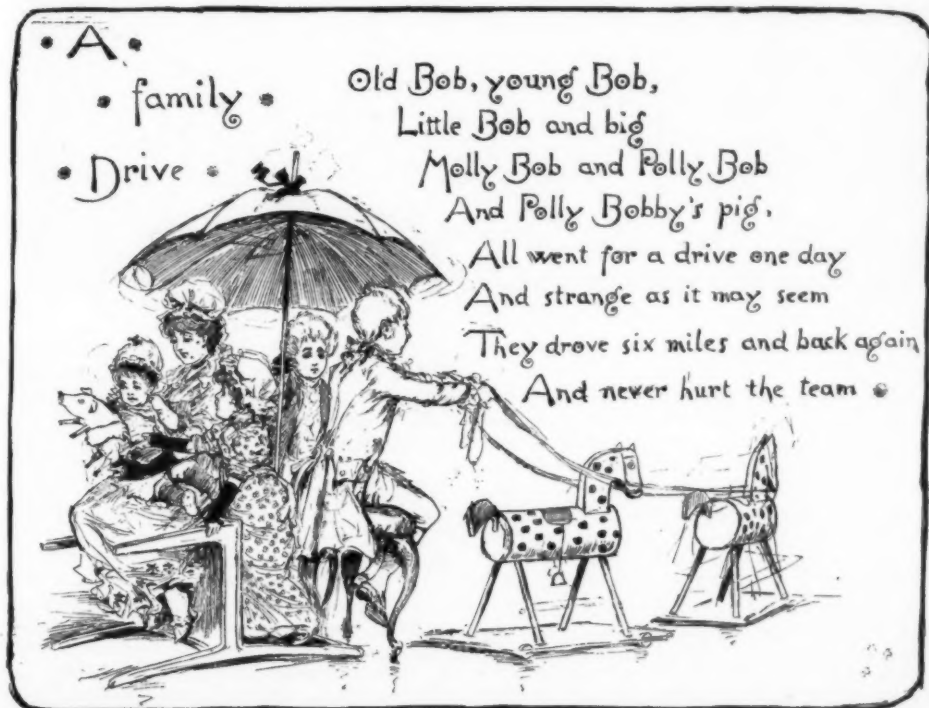 A
family
Drive
Old Bob, young Bob,
Little Bob and big
Molly Bob and Polly Bob
And Polly Bobby's pig,
All went for a drive one day
And strange as it may seem
They drove six miles and back again
And never hurt the team